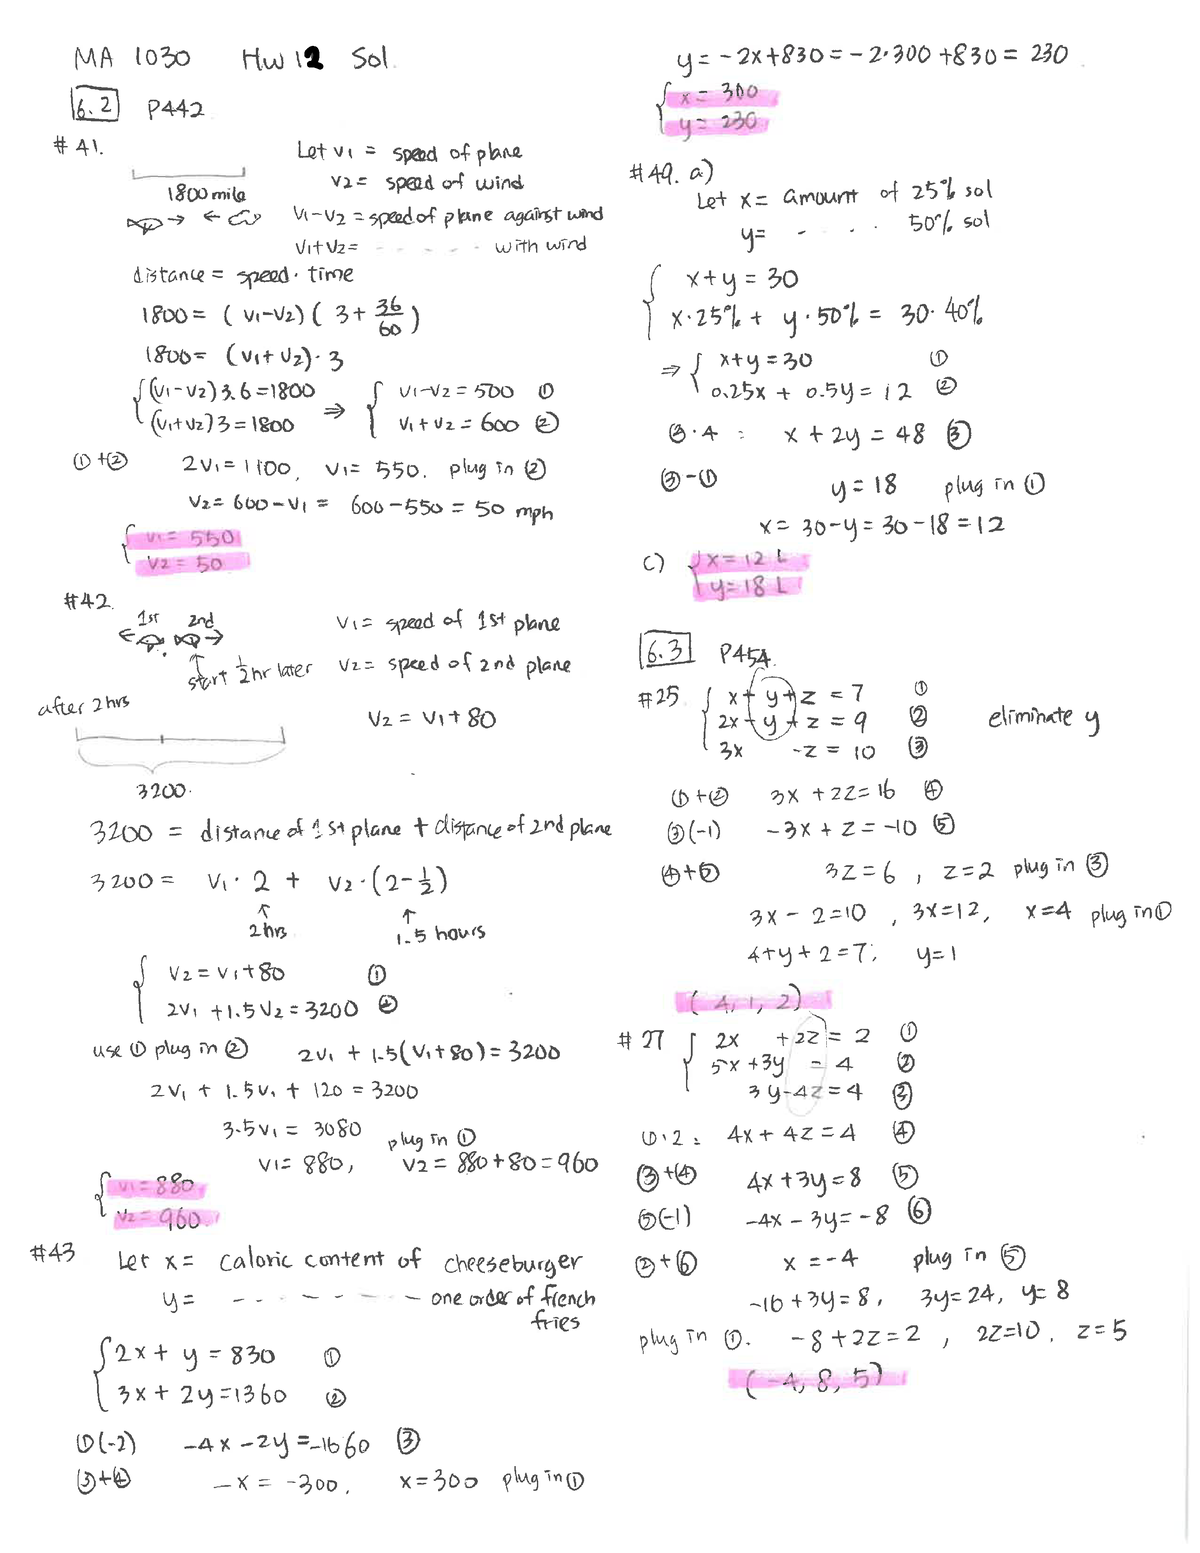 MA 1030 HW 12 Sol.
6.2 P442
#41.
1800 mile
Let v1 = speed of plane
v2 = speed of wind
v1-v2 = speed of plane against wind
v1+v2 = - - - - - with wind
distance = speed · time
1800 = (v1-v2)(3+36/60)
1800 = (v1+v2)·3
{(v1-v2)3.6=1800 ⇒ {v1-v2=500 ①
(v1+v2)3=1800 v1+v2=600 ②
①+② 2v1=1100, v1=550. plug in ②
v2=600-v1 = 600-550=50 mph
{v1=550
v2=50
#42.
1st 2nd
start 1/2 hr later
v1= speed of 1st plane
v2= speed of 2nd plane
after 2hrs
v2=v1+80
3200.
3200 = distance of 1st plane + distance of 2nd plane
3200 = v1·2 + v2·(2-1/2)
↑ ↑
2hrs 1.5 hours
{v2=v1+80 ①
2v1+1.5v2=3200 ②
use ① plug in ② 2v1+1.5(v1+80)=3200
2v1+1.5v1+120=3200
3.5v1=3080
v1=880, plug in ① v2=880+80=960
{v1=880
v2=960
#43 Let x= caloric content of cheeseburger
y= - - - - - - - one order of french
fries
{2x+y=830 ①
3x+2y=1360 ②
①(-2) -4x-2y=-1660 ③
③+④ -x=-300, x=300 plug in ①
y=-2x+830=-2·300+830=230
{x=300
y=230
#49. a)
Let x= amount of 25% sol
y= - . . . 50% sol
{x+y=30
x·25%+y·50%=30·40%
⇒ {x+y=30 ①
0.25x+0.5y=12 ②
③·4: x+2y=48 ③
③-① y=18 plug in ①
x=30-y=30-18=12
c) {x=12 L
y=18 L
6.3 P454.
#25 {x+y+z=7 ①
2x-y+z=9 ② eliminate y
3x -z=10 ③
①+② 3x+2z=16 ④
③(-1) -3x+z=-10 ⑤
④+⑤ 3z=6, z=2 plug in ③
3x-2=10, 3x=12, x=4 plug in ①
4+y+2=7; y=1
(4,1,2)
#27 {2x +2z=2 ①
5x+3y =4 ②
3y-4z=4 ③
①·2: 4x+4z=4 ④
③+④ 4x+3y=8 ⑤
⑤(-1) -4x-3y=-8 ⑥
②+⑥ x=-4 plug in ⑤
-16+3y=8, 3y=24, y=8
plug in ①. -8+2z=2, 2z=10, z=5
(-4,8,5)